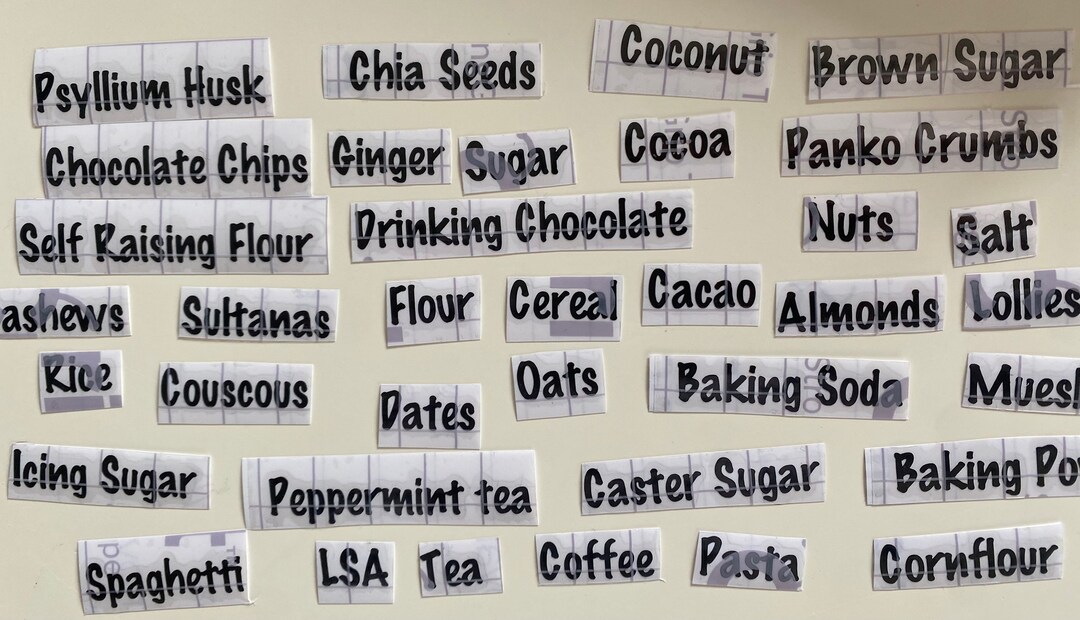 Psyllium Husk
Chia Seeds
Coconut
Brown Sugar
Chocolate Chips
Ginger
Sugar
Cocoa
Panko Crumbs
Self Raising Flour
Drinking Chocolate
Nuts
Salt
ashews
Sultanas
Flour
Cereal
Cacao
Almonds
Lollies
Rice
Couscous
Dates
Oats
Baking Soda
Muesl
Icing Sugar
Peppermint tea
Caster Sugar
Baking Po
Spaghetti
LSA
Tea
Coffee
Pasta
Cornflour